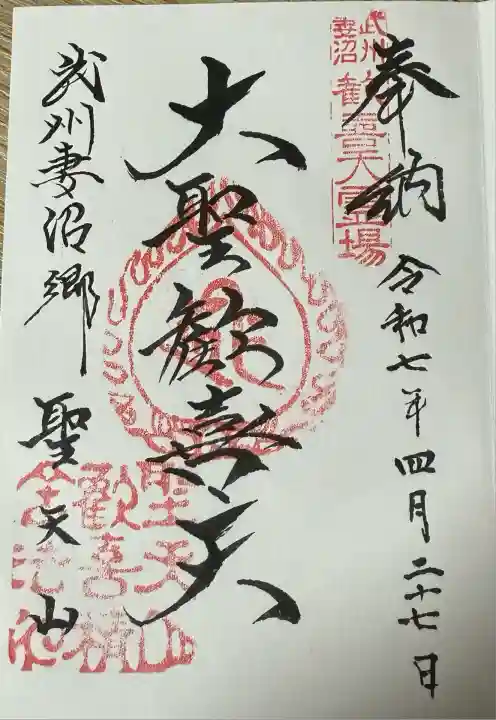 奉納
令和七年四月二十七日
武州妻沼
歓喜天霊場
大聖歓喜天
武州妻沼郷
聖天山
聖天山
歓喜